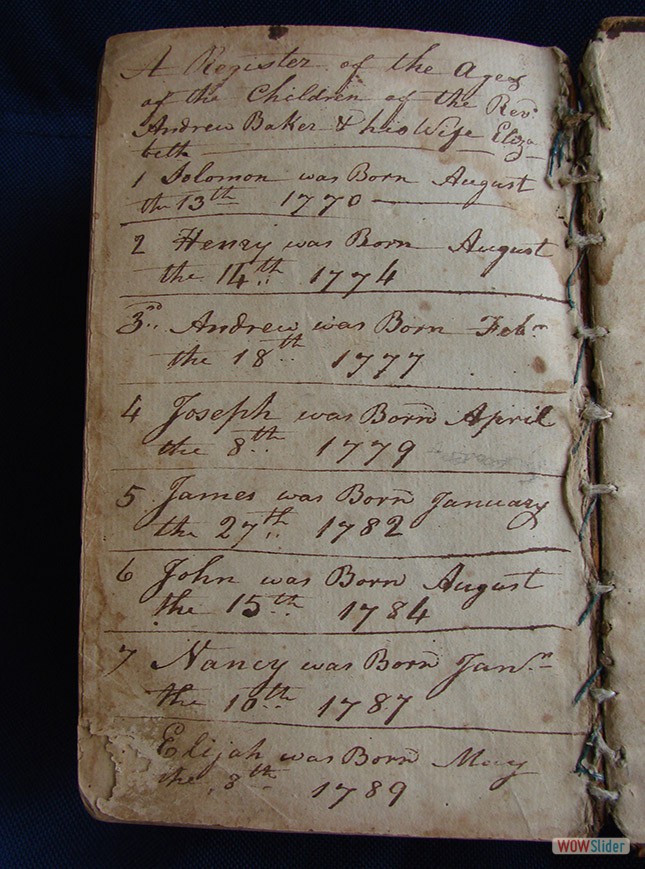 A Register of the Ages
of the Children of the Revd.
Andrew Baker & his Wife Eliza
beth
1 Solomon was Born August
the 13th 1770
2 Henry was Born August
the 14th 1774
3rd Andrew was Born Febr
the 18th 1777
4 Joseph was Born April
the 8th 1779
5 James was Born January
the 27th 1782
6 John was Born August
the 15th 1784
7 Nancy was Born Janr
the 10th 1787
Elijah was Born May
the 8th 1789
WOWSlider